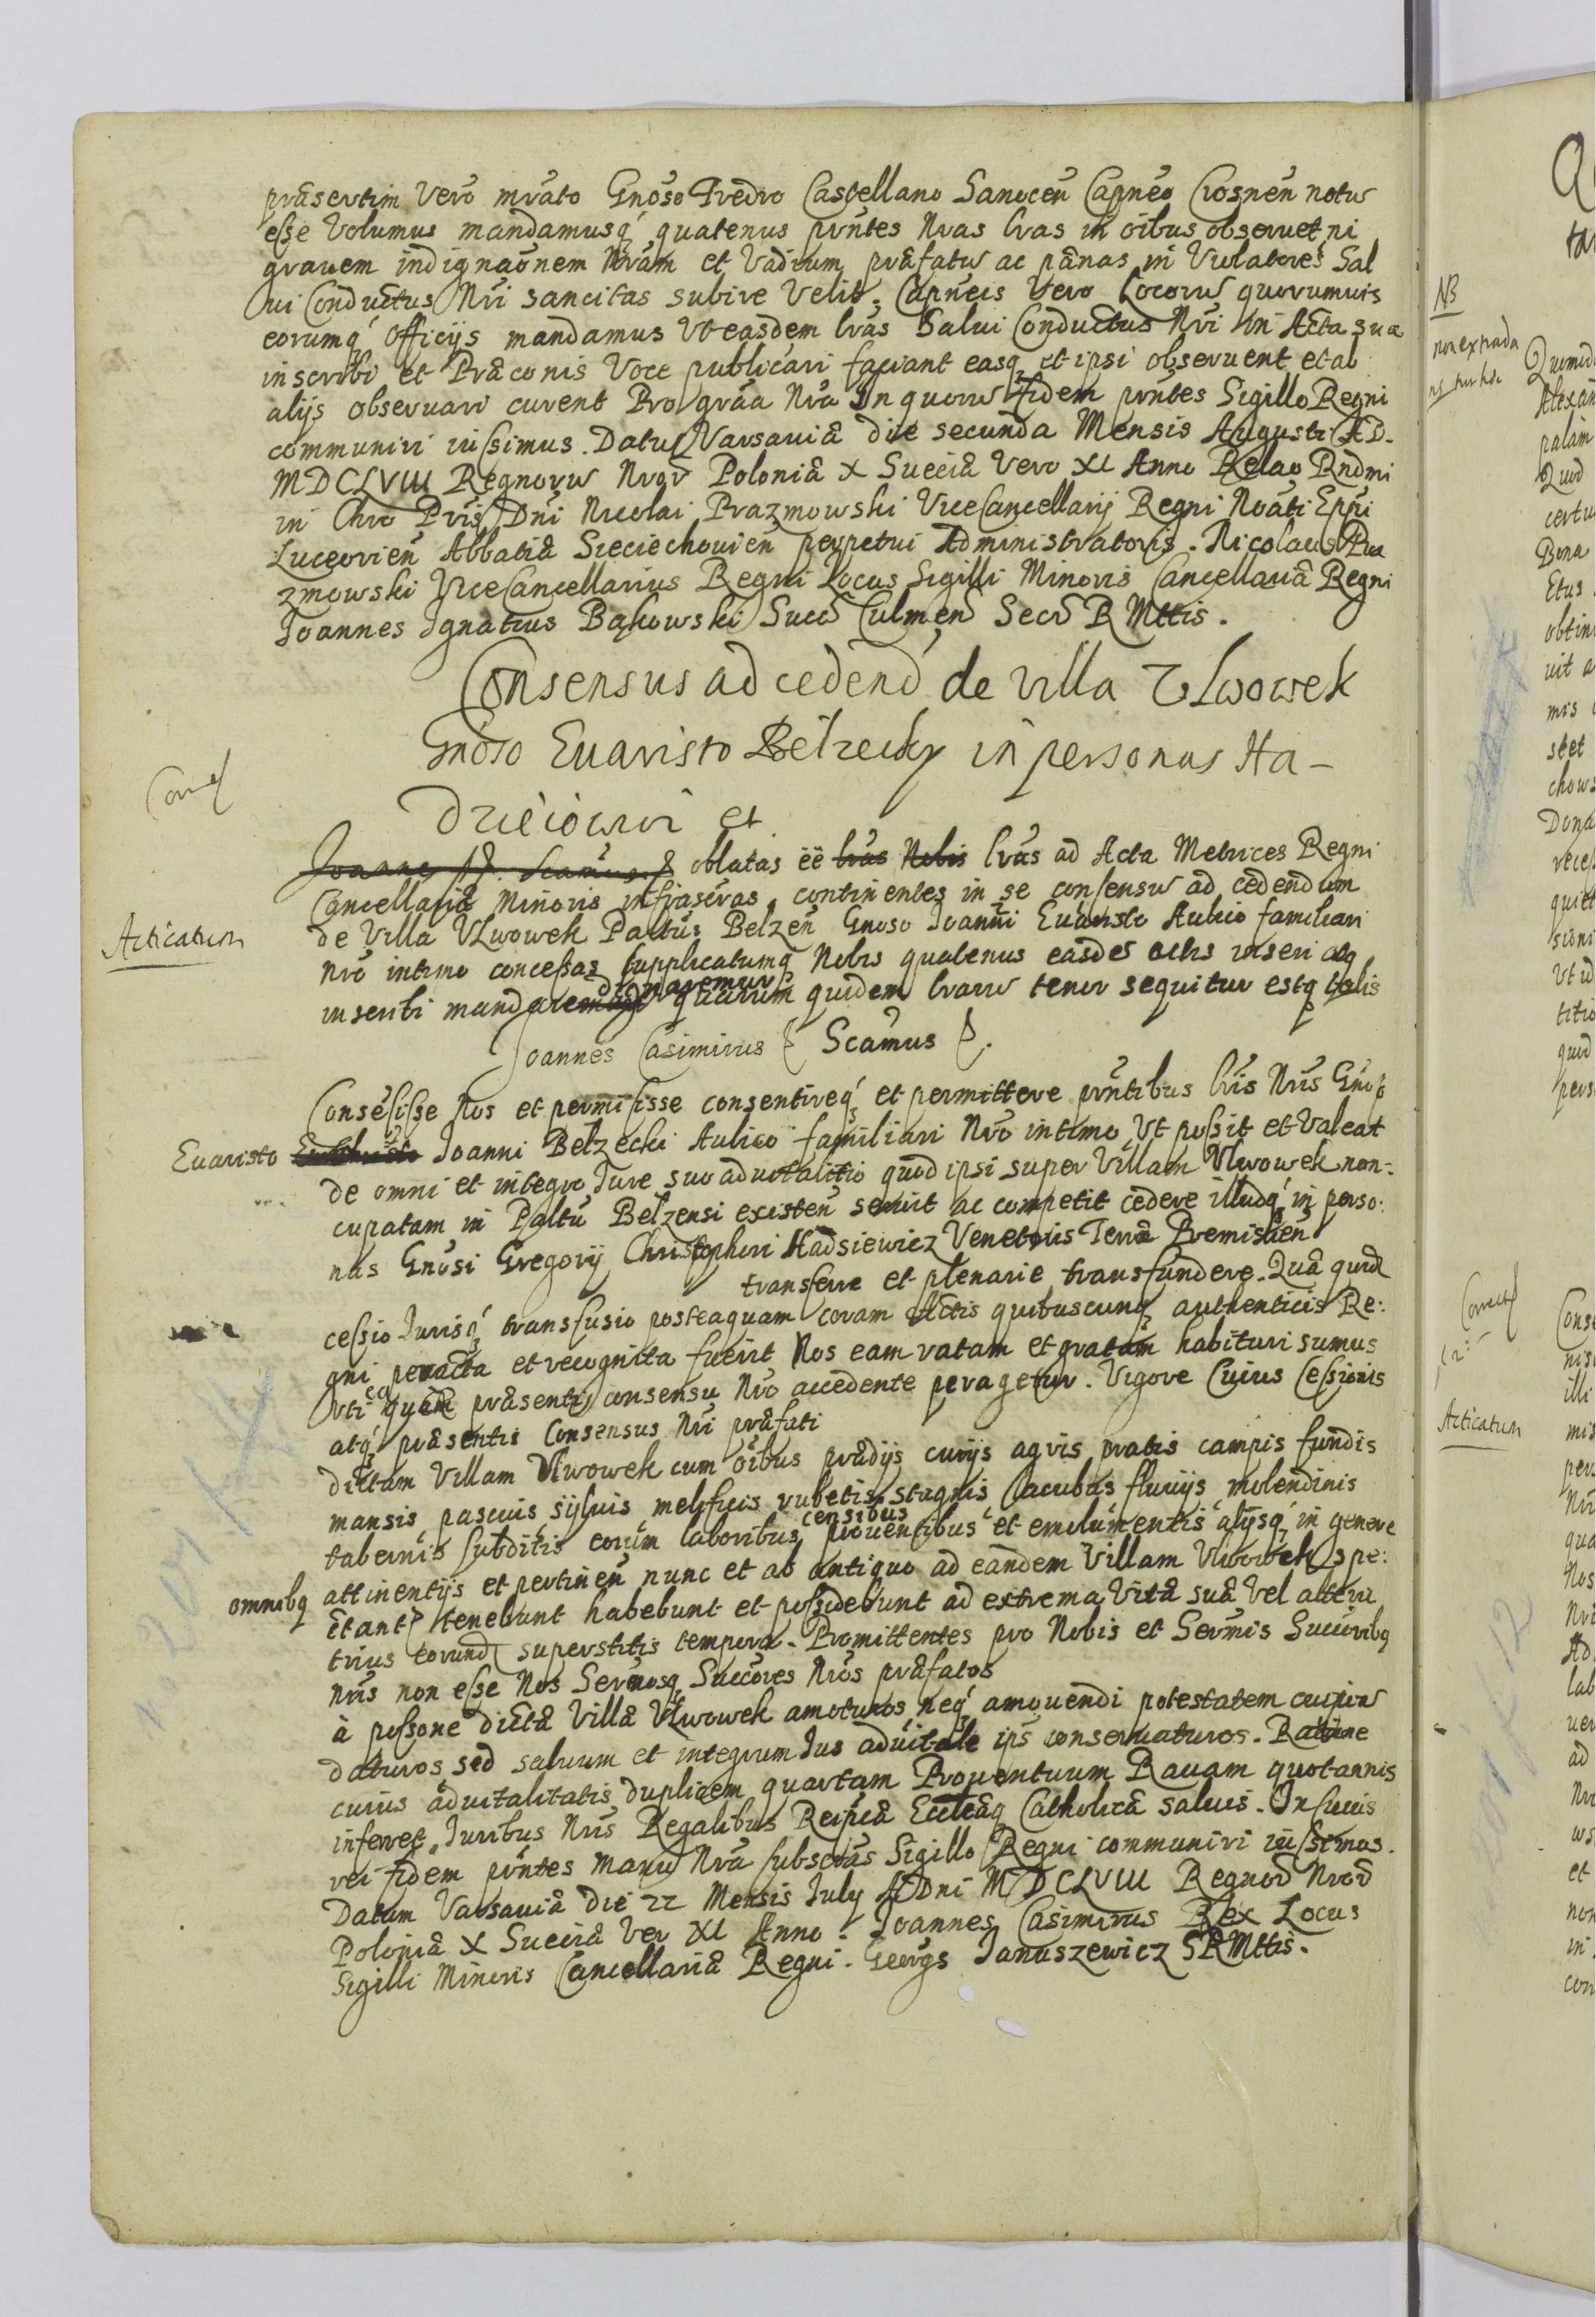 præsertim Vero mrato Gnoso Fredro Castellano Sanocen Capneo Crosnen notu
esse Volumus mandamusq quatenus prntes Nras lras in oibus obseruet ni
grauem indignaonem Nram et Vadium præfatu ac pænas in Violatores Sal
ui Conductus Nri sancitas subire Velit. Capneis Vero Locoru quorumuis
eorumq Officijs mandamus Vt easdem lras Salui Conductus Nri in Acta sua
inscribi et Præconis Voce publicari faciant easq et ipsi obseruent et ab
alijs obseruari curent Pro graa Nra In quoru fidem prntes Sigillo Regni
communiri iussimus. Datu Varsauiæ die secunda Mensis Augusti AD.
MDCLVIII Regnoru Nror Poloniæ X Sueciæ Vero XI Anno Relao Rndmi
in Chro Pris Dni Nicolai Prazmowski ViceCancellarij Regni Noati Eppi
Luceorien Abbatiæ Sieciechouien perpetui Administratoris. Nicolaus Pra
zmowski ViceCancellarius Regni Locus Sigilli Minoris Cancellariæ Regni
Joannes Ignatius Bąkowski Succ Culmen Secr R Mttis.
Consensus ad cedend de Villa Vlwowek
Gnoso Euaristo Belzecky in personas Ha-
dzieiowi et
Joanne oblatas ee lras Nobis lras ad Acta Metrices Regni
Cancellariæ Minoris infrascras, continentes in se consensu ad cedendum
de Villa Vlwowek Paltus Belzen Gnoso Joanni Euaristo Aulico familiari
Acticatum
nro intimo concessas supplicatumq Nobis quatenus easde actis inseri atq
inscribi mandaremus dignaremur quarum quidem lraru tenor sequitur estq talis
Joannes Casimirus Scamus
Consesisse Nos et permisisse consentireq et permittere prntibus lris Nris Gnoso
Euaristo Joanni Belzecki Aulico familiari Nro intimo Vt possit et Valeat
de omni et integro Jure suo aduitalitio quod ipsi super Villam Vlwowek non-
cupatam in Paltu Belzensi existen seruit ac competit cedere illudq in perso:
nas Gnosi Gregorij Christopheri Hadsiewicz Venetoris Terræ Premislien
transferre et plenarie transfundere. Quæ quid
cessio Jurisq transfusio posteaquam coram Actis quibuscunq authenticis Re:
gni peracta et recognita fuerit Nos eam ratam et gratam habituri sumus
vti ea præsenti consensu Nro accedente peragetur. Vigore Cuius Cessionis
atq præsentis Consensus Nri præfati
dictam Villam Vlwowek cum oibus prædijs curijs agris pratis campis fundis
mansis pascuis syluis melificijs rubetis stagnis lacubus fluuijs molendinis
tabernis subditis eorum laboribus censibus prouentibus et emolumentis alijsq in genere
omnibq attinentijs et pertinen nunc et ab antiquo ad eandem Villam Vlwowek spe:
ctant tenebunt habebunt et possidebunt ad extrema Vitæ suæ Vel alteru
trius eorund superstitis tempora. Promittentes pro Nobis et Sermis Succoribq
nris non esse Nos Sermosq Succores Nros præfatos
à possone dictæ Villæ Vlwowek amoturos neq amouendi potestatem cuipiu
daturos sed saluum et integrum Jus aduitale ips conseruaturos. Ratione
cuius aduitalitatis duplicem quartam Prouentuum Rauam quotannis
inferret. Juribus Nris Regalibus Reipcæ Eccleæq Catholicæ saluis. In cuius
rei fidem prntes manu Nra subscras Sigillo Regni communiri iussimus.
Datum Varsauiæ Die 22 Mensis July ADni MDCLVIII Regnor Nror
Poloniæ X Sueciæ Ver XI Anno. Joannes Casimirus Rex Locus
Sigilli Minoris Cancellariæ Regni. Georgs Januszewicz SRMttis.
NB
Acticatum